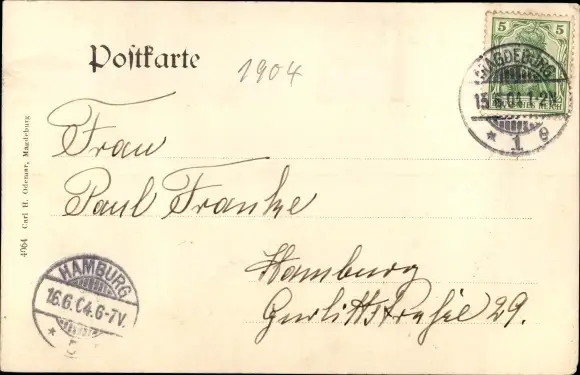 Postkarte
1904
5 5
MAGDEBURG
15.6.04.1-2N.
* 1 g
DEUTSCHES REICH
Frau
Paul Franke
Hamburg
Gurlittstraße 29.
HAMBURG
16.6.04.6-7V.
* 5
4964 Carl H. Odemar, Magdeburg